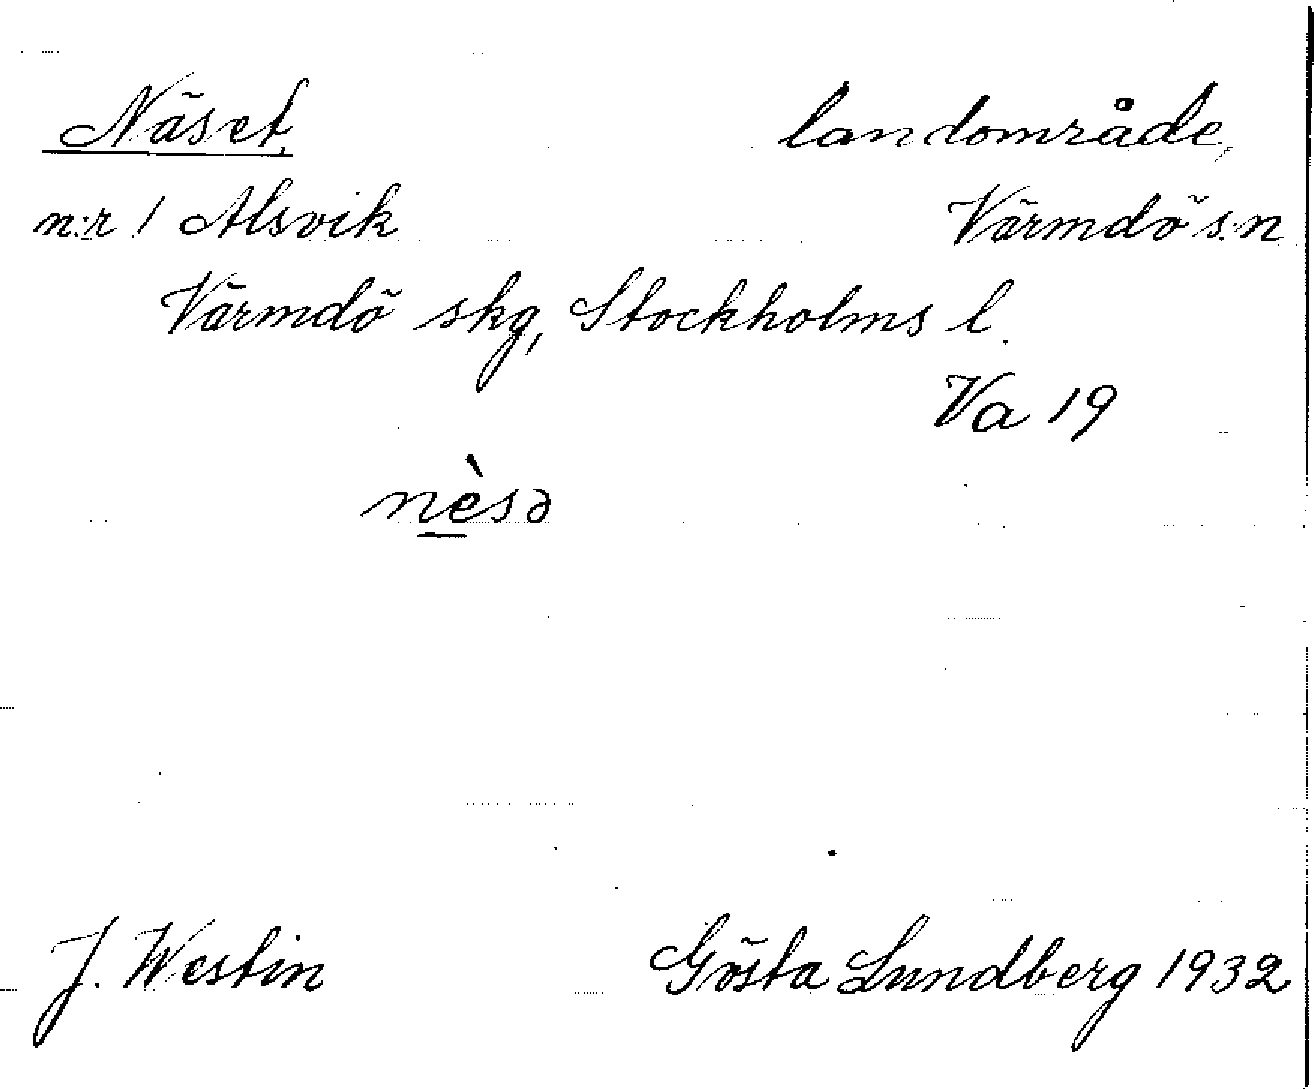 Näset, landområde,
n:r 1 Alsvik Värmdö s:n
Värmdö skg, Stockholms l.
Va 19
nèsə
J. Westin Gösta Lundberg 1932